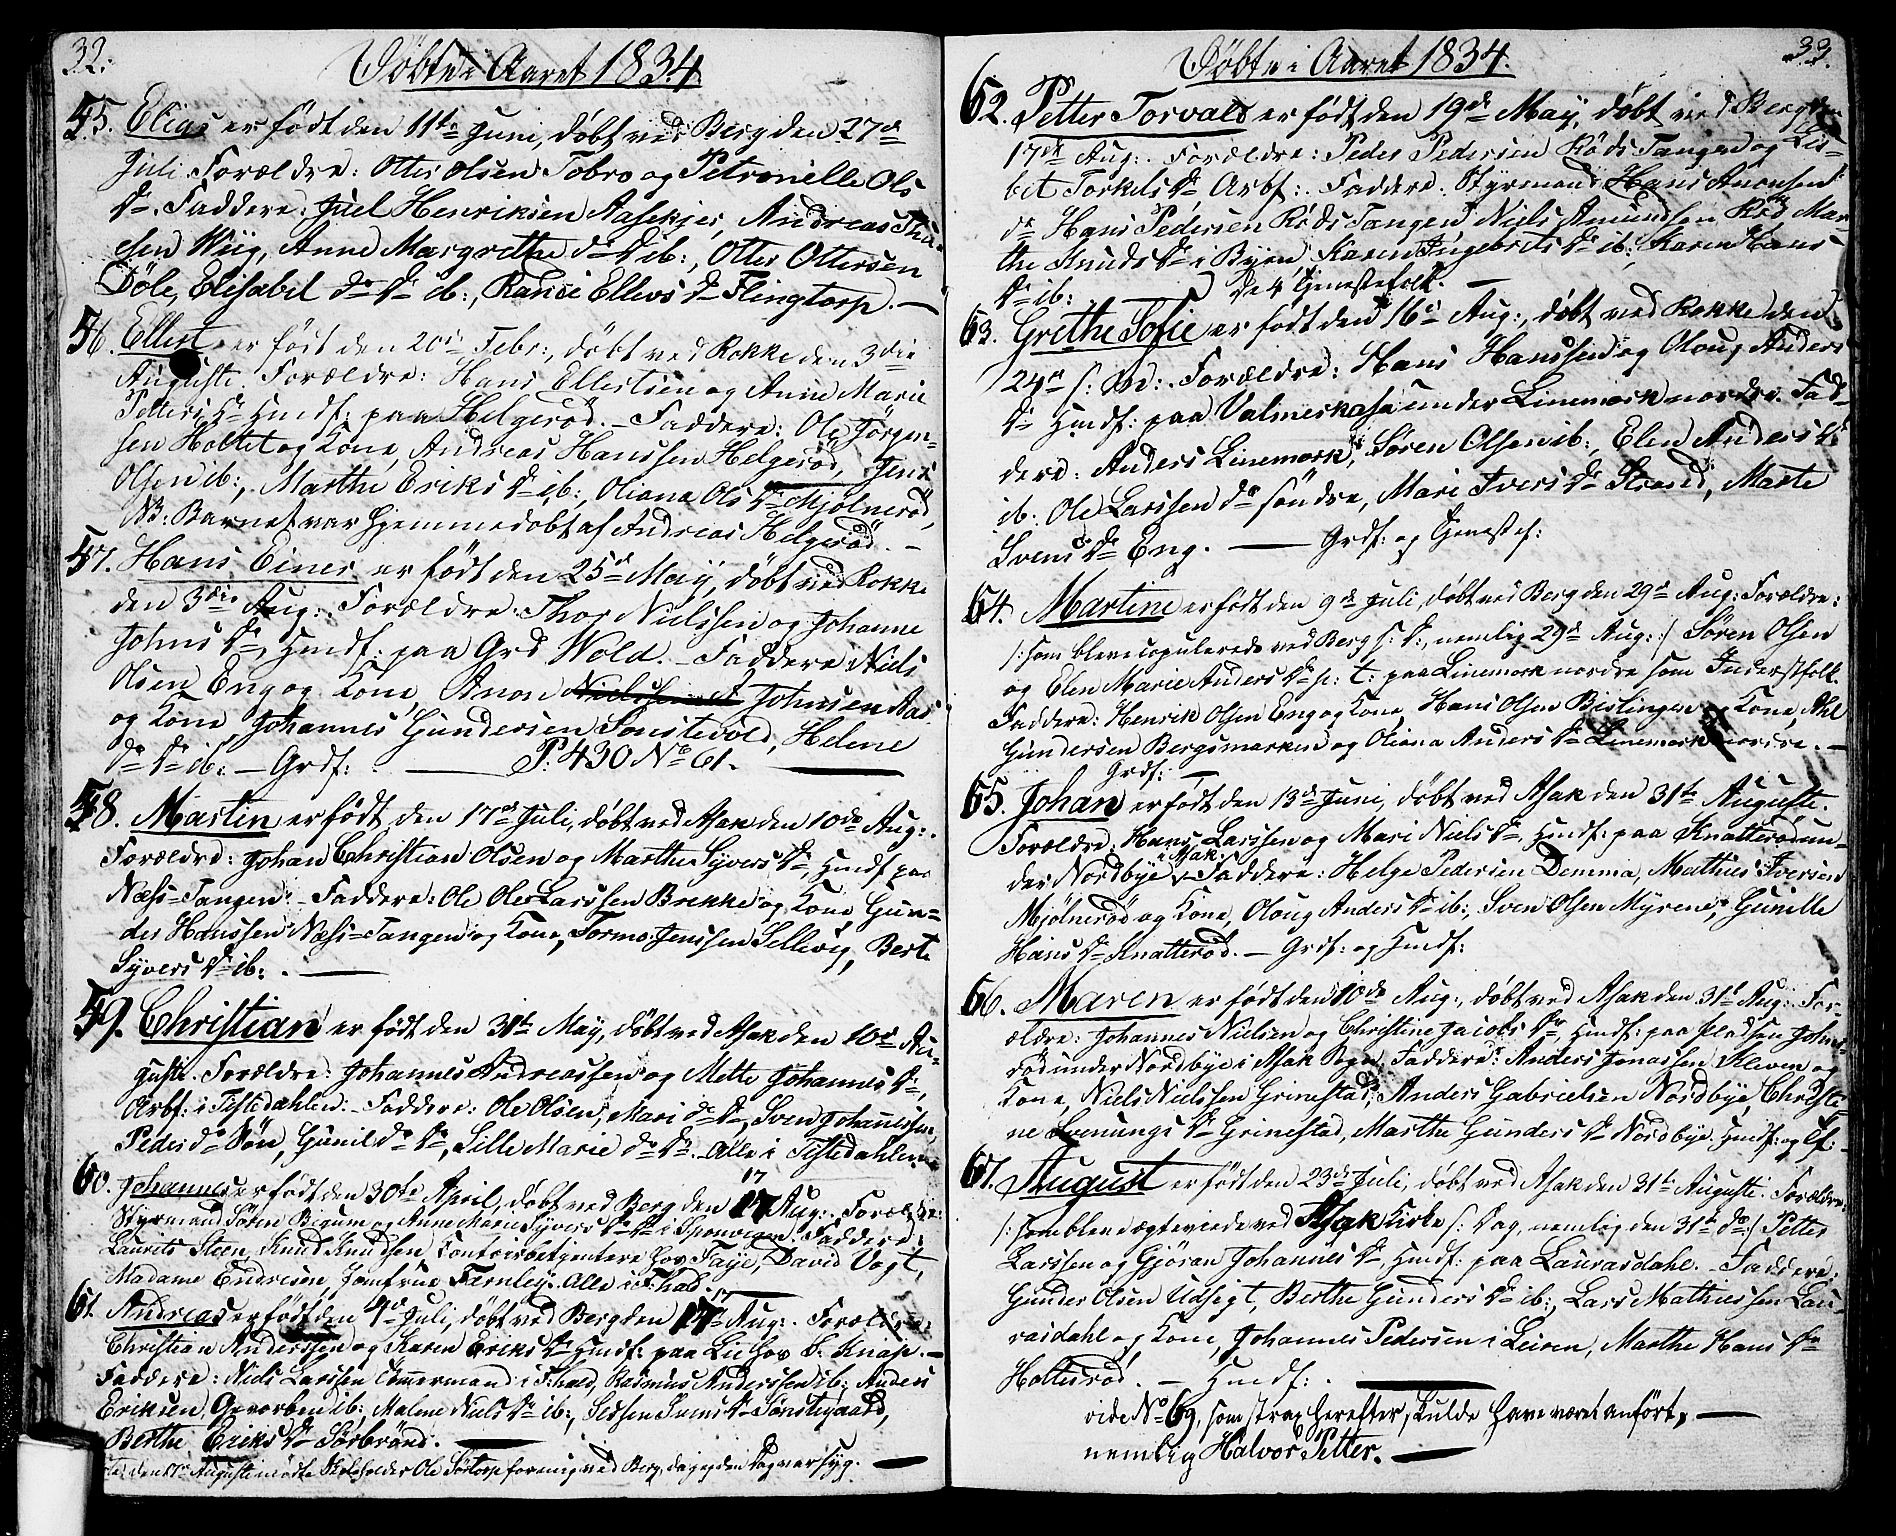 32.
Döbte i Aaret 1834
55. Elias er født den 11te Juni, døbt ved Berg den 27de
Juli. Forældre: Otter Olsen Tobro og Petronelle Ols
Dr. Faddere: Juel Henriksen Aasekjer, Andreas Thu-
esen Wiig, Anne Margrethe do Dr ib:, Otter Ottersen
Döle, Elisabet do Dr ib:, Randi Ellevs Dr Flingtorp. —
56. Ellest er født den 20de Febr:, døbt ved Rokke den 3die
Auguste. Forældre: Hans Ellertsen og Anne Marie
Petters Dr Husmf: paa Helgerød. — Faddere: Ole Jörgen-
sen Holtet og Kone, Andreas Hanssen Helgerød, Jens
Olsen ib:, Marthe Eriks Dr ib:, Oliana Ols Dr Mjölnerød,
NB: Barnet var hjemmedøbt af Andreas Helgerød. —
57. Hans Einer er født den 25de May, døbt ved Rokke
den 3die Aug: Forældre: Thor Nielssen og Johanne
Johns Dr, Husmf: paa Grd Wold. — Faddere Niels
Olsen Eng og Kone, Anon Johnsen Aas
og Kone, Johannes Gundersen Sonstevold, Helene
do Dr ib: — Grdf: — P: 430 No 61. —
58. Martin er født den 17de Juli, døbt ved Asak den 10de Aug:.
Forældre: Johan Christian Olsen og Marthe Syvers Dr, Husmf paa
Næss-Tangen. — Faddere: Ole Ole Larssen Brekke og Kone Gun-
der Hanssen Næss-Tangen og Kone, Tormo Jenssen Sellevig, Berte
Syvers Dr ib: —
59. Christian er født den 31te May, døbt ved Asak den 10de Au-
guste. Forældre: Johannes Andreassen og Mette Johannes Dr,
Arbf: i Tistedahlen: Faddere: Ole Olsen, Mari do Dr, Sven Johannessen,
Peder do Sön, Gunil do Dr, Sille Marie do Dr. Alle i Tistedahlen.
60. Johannes er født den 30te April, døbt ved Berg den 17 Aug:. Forældre:
Styrmand Sören Bigum og Anne Marie Syvers Dr i Sponvigen. Faddere:
Laurits Steen, Knud Knudsen, Contoirbetjentere hos Taye, David Vogt,
Madame Endresen, Jomfrue Fernley. Alle i F:hald.
61. Andreas er født den 4de Juli, døbt ved Berg den 17 Aug:. Forældre:
Christian Anderssen og Karen Eriks Dr Husmf: paa Lie hos C. Knap. —
Faddere: Niels Larssen Tömmermand i F:hald, Rasmus Anderssen ib: Anders
Eriksen, ib: Malene Niels Dr ib:, Sissen Svens Dr Sönstegaard,
Berthe Eriks Dr Sörbrönd. —
den 17 Auguste Skoleholder Ole Sörtorp ved Berg, da jeg den Dag var syg. —
33.
Döbte i Aaret 1834.
62. Petter Torvald er født den 19de May, døbt ved Berg den
17de Aug:. Forældre: Peder Pedersen Röds Tangen og Lis-
bet Torkels Dr Arbf:. Faddere: Styrmand Hans Anonsen
do Hans Pedersen Röds Tangen Niels Amundsen Röd Mar-
the Knuds Dr i Byen Karen Ingebrets Dr ib:, Karen Hans
Dr ib: — De 4 Tjenestefolk. —
63. Grethe Sofie er født den 16de Aug:, døbt ved Rokke den
24de s: M:. Forældre: Hans Hanssen og Oloug Anders
Dr Husmf: paa Valmerkasa under Linemork nordre. Fad-
dere: Anders Linemork, Sören Olsen ib:, Elen Anders Dr
ib. Ole Larssen do söndre, Mari Ivers Dr Strand, Marte
Svens Dr Eng. — Grdf: og Tjenestef:
64. Martine er født den 9de Juli, døbt ved Berg den 29de Aug: Forældre:
/: som bleve copulerede ved Berg s: D:, nemlig 29de Aug: :/ Sören Olsen
og Elen Marie Anders Dr p: t: paa Linemork nordre som Inderstfolk.
Faddere: Henrik Olsen Eng og Kone, Hans Olsen Bislingen og Kone, Ahl
Gundersen Bergsmarken og Oliana Anders Dr Linemork nordre. —
Grdf: —
65. Johan er født den 13de Juni, døbt ved Asak den 31te Auguste.
Forældre: Hans Larssen og Mari Niels Dr, Husmf: paa Knatterød un-
der Nordbye i Asak. Faddere: Helge Pedersen Demma, Mathies Iversen
Mjölnerød og Kone, Oloug Anders Dr ib:, Sven Olsen Myrene, Gunille
Hans Dr Knatterød. — Grdf: og Husmf:
66. Maren er født den 10de Aug:, døbt ved Asak den 31te Aug: For-
ældre: Johannes Nielsen og Christine Jacobs Dr, Husmf: paa Pladsen Johns-
rød under Nordbye i Asak Sogn. Faddere: Anders Jonassen Kleven og
Kone, Niels Nielssen Grinestad, Anders Gabrielsen Nordbye, Christi-
ne Levnungs Dr Grinestad, Marthe Gunders Dr Nordbye. Husmf: og Tf:
67. August er født den 23de Juli, døbt ved Asak den 31te Auguste. Forældre:
/: som blev ægteviede ved Asak Kirke s: Dag, nemlig den 31te do :/ Petter
Larssen og Gjøran Johannes Dr, Husmf: paa Laurasdahl. — Faddere:
Gunder Olsen Udsigt, Berthe Gunders Dr ib:, Lars Mathiessen Lau-
rasdahl og Kone, Johannes Pedersen i Leiren, Marthe Hans Dr
Holtesrød. — Husmf:. —
vide No 69, som strax herefter, skulde have været anført, —
nemlig Halvor Petter. —